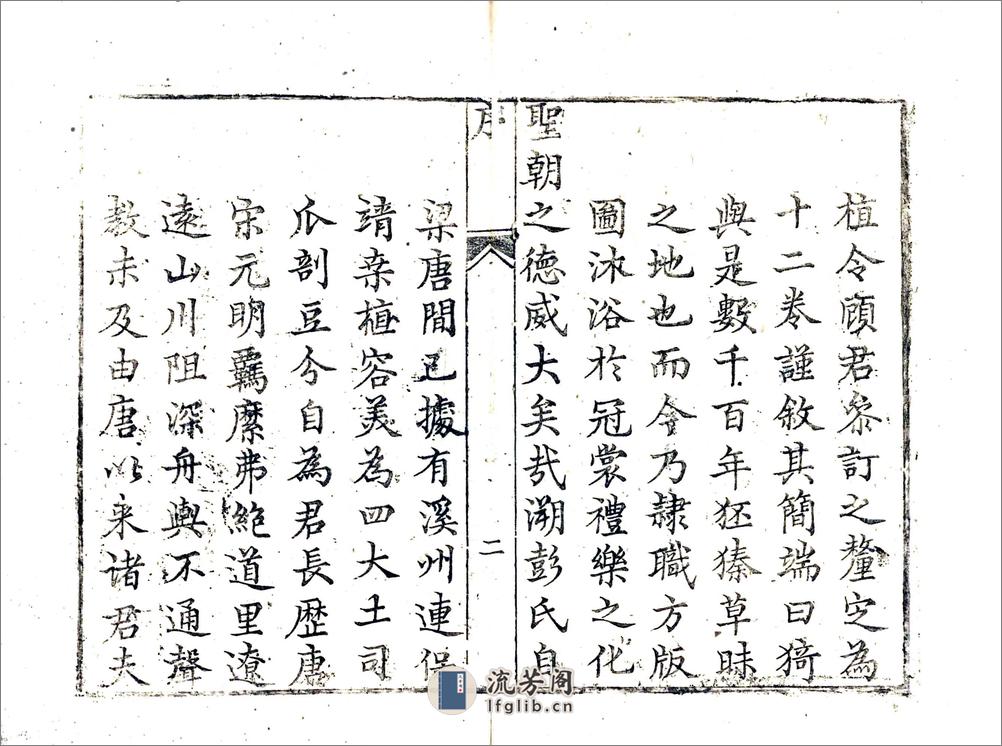 植令頋君叅訂之釐定為
十二卷謹敘其簡端曰猗
與是數千百年狉獉草昧
之地也而今乃隷職方版
圖沐浴於冠裳禮樂之化
聖朝之德威大矣哉溯彭氏自
序
二
梁唐間已據有溪州連保
靖桒植容美為四大土司
瓜剖豆分自為君長歷唐
宋元明羈縻弗絕道里遼
遠山川阻深舟輿不通聲
教未及由唐以来诸君夫
流芳阁
lfglib.cn